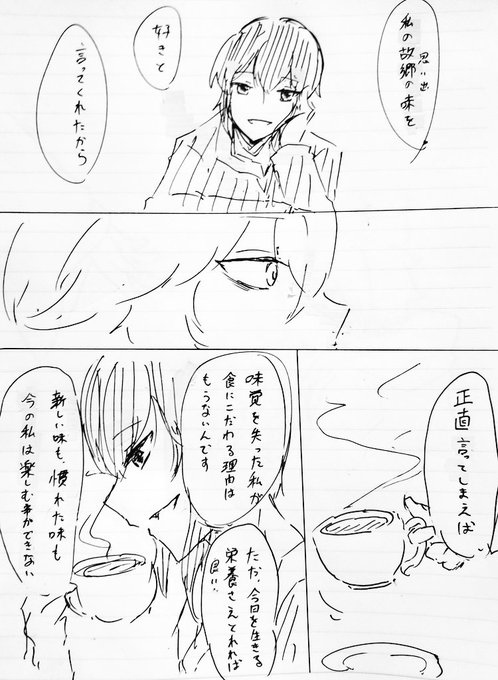 思い出
私の故郷の味を
好きと
言ってくれたから
正直言ってしまえば
味覚を失った私が
食にこだわる理由は
もうないんです
ただ、今日を生きる
栄養さえとれれば
良い、
新しい味も、慣れた味も
今の私は楽しむ事ができない